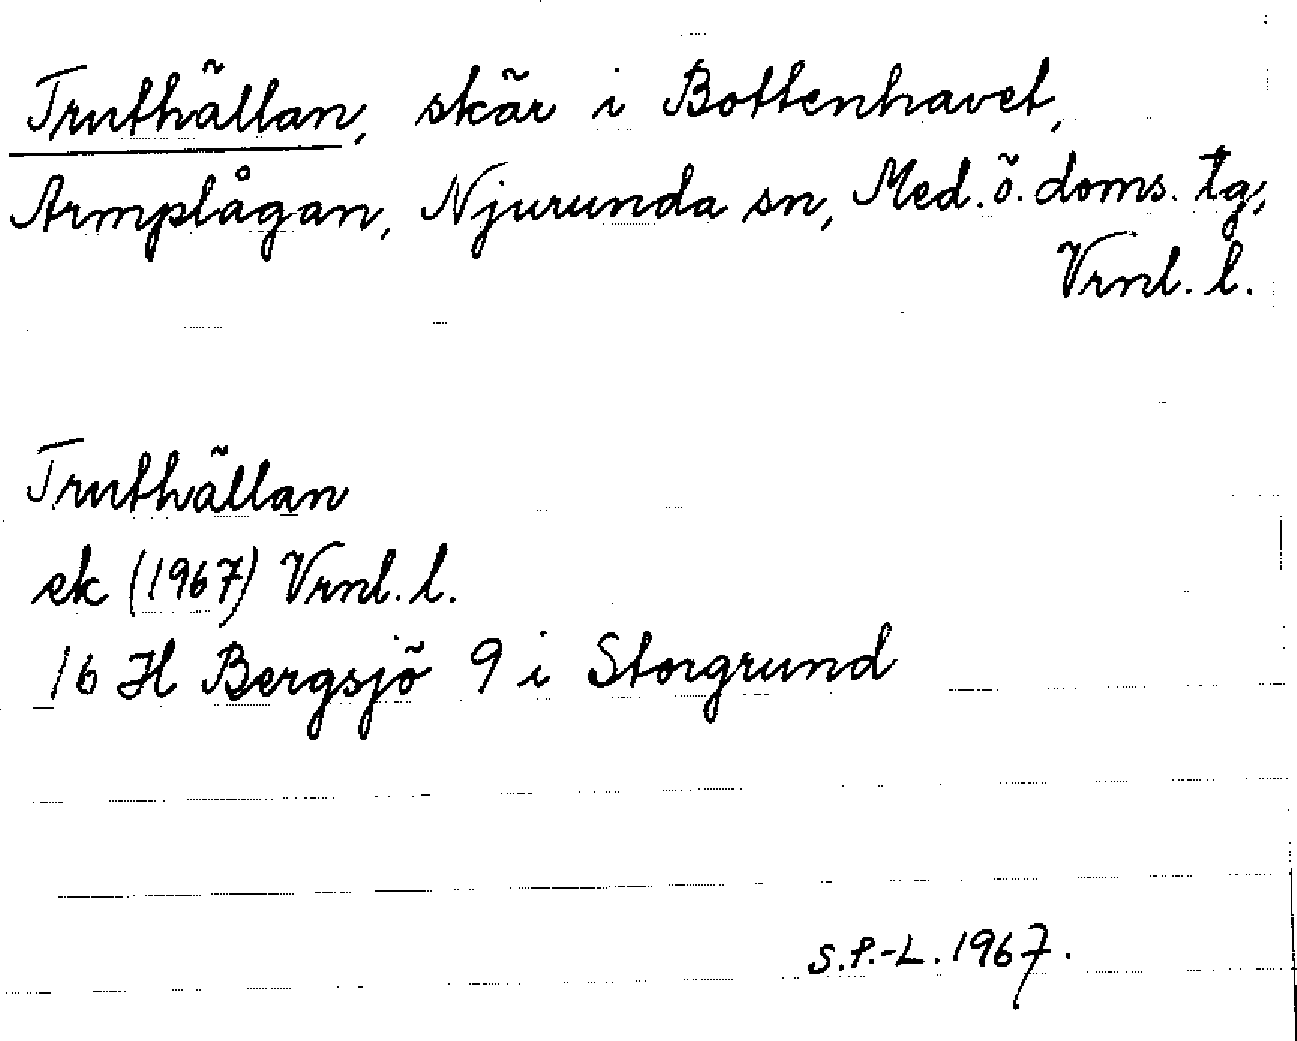 Truthällan, skär i Bottenhavet,
Armplågan, Njurunda sn, Med. ö. doms. tg,
Vrnl. l.
Truthällan
ek (1967) Vrnl. l.
16 H Bergsjö 9 i Storgrund
S.P.-L. 1967.